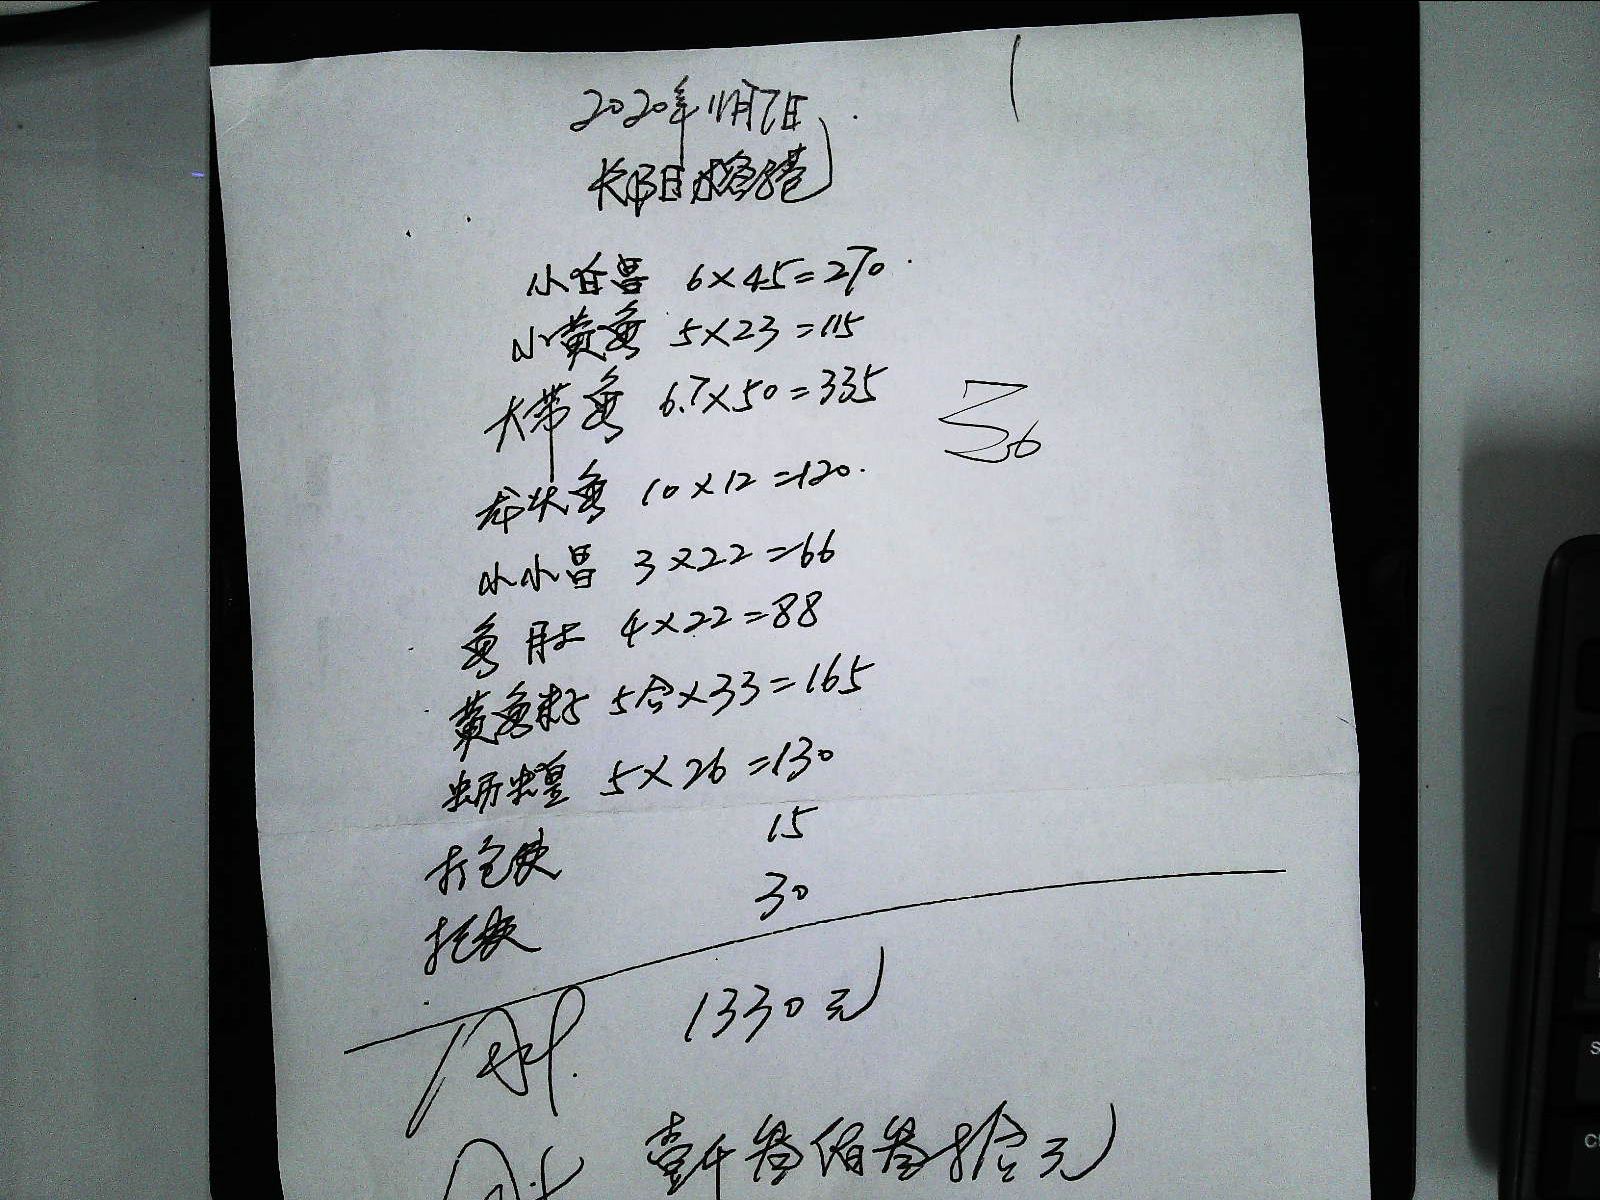 2020年11月7日
长阳渔港
小白昌 6×45=270
小黄鱼 5×23=115
大带鱼 6.7×50=335
龙头鱼 10×12=120.
小小昌 3×22=66
鱼肚 4×22=88
黄鱼籽 5合×33=165
蛎蝗 5×26=130
打包费 15
托费 30
1330元
壹仟叁佰叁拾元